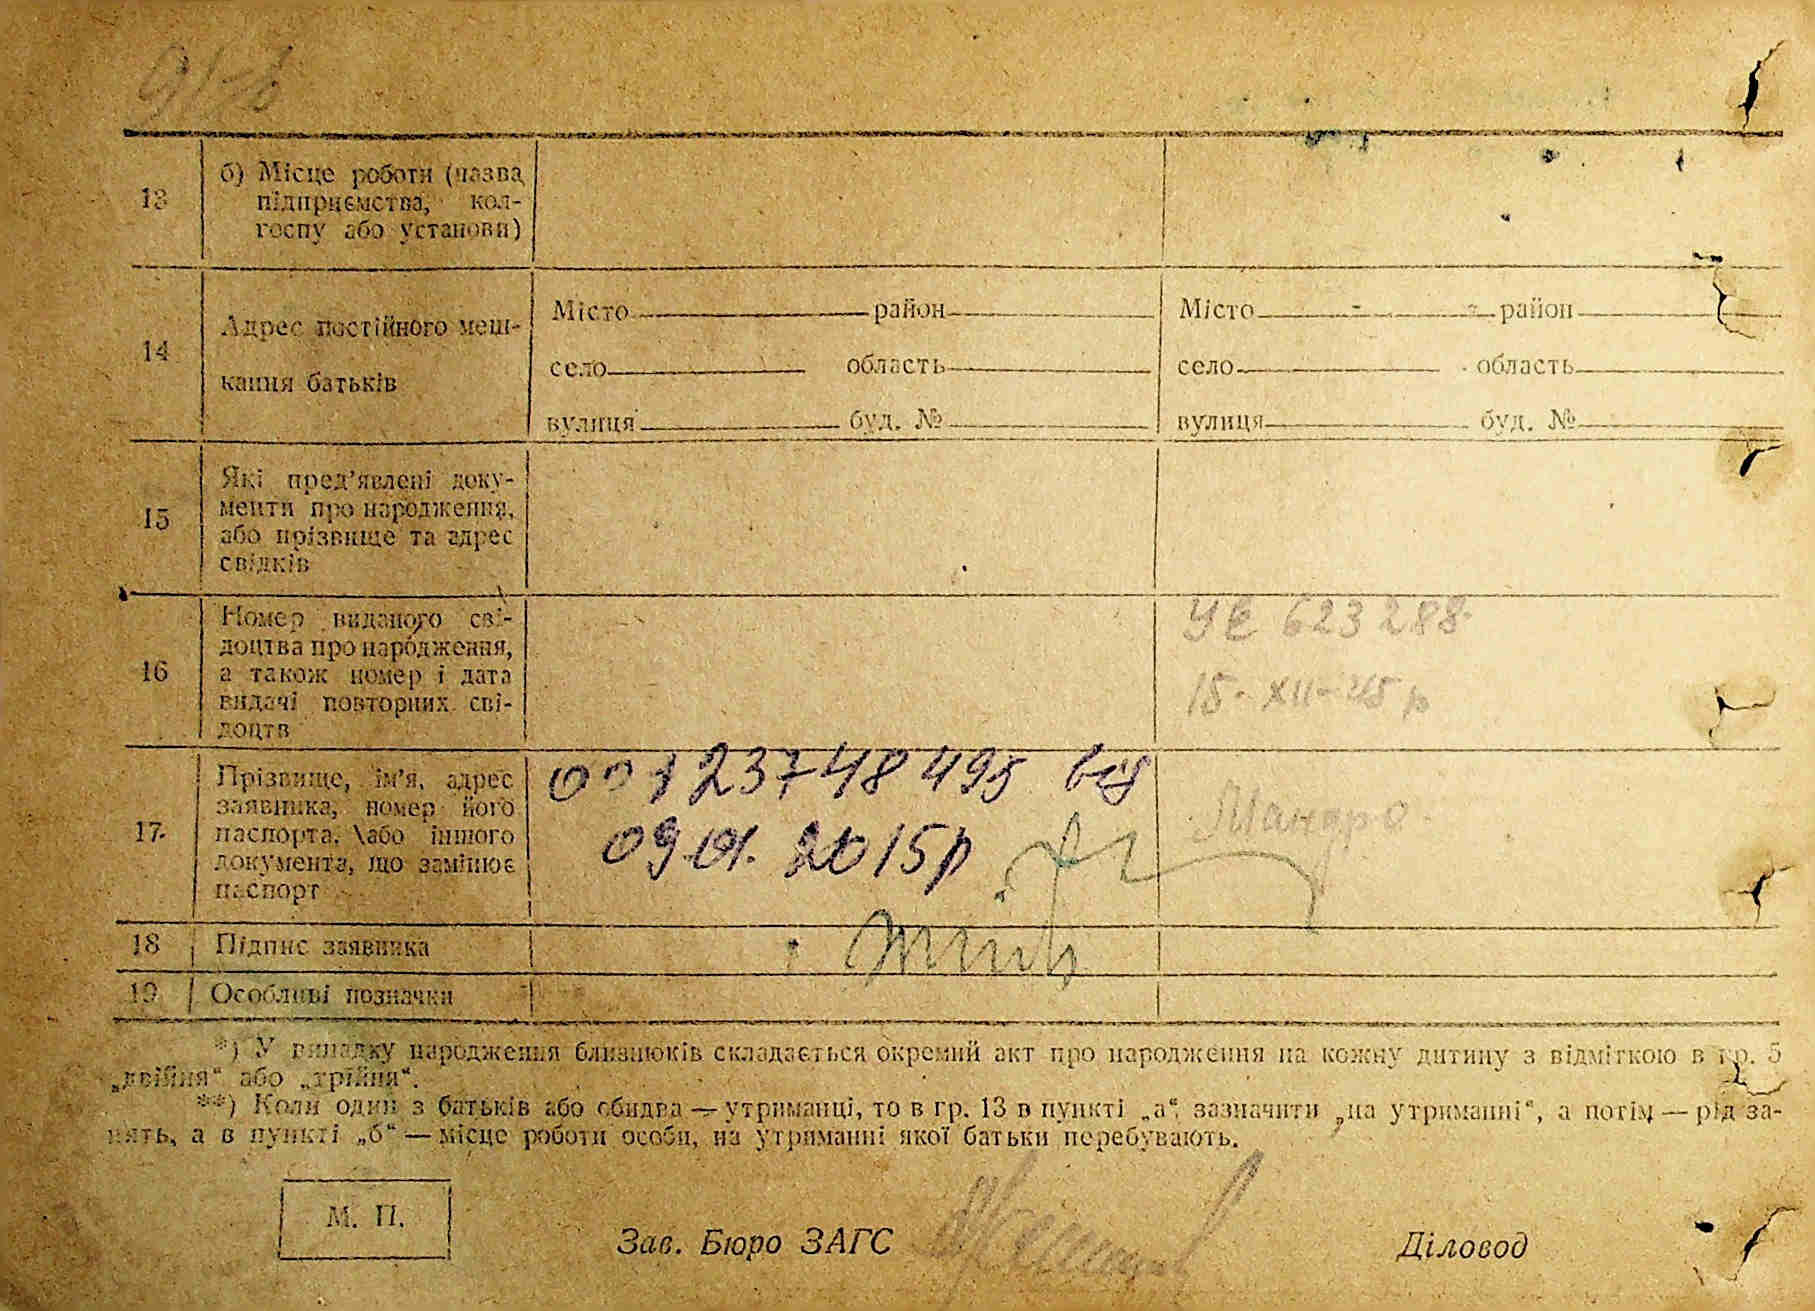 13
б) Місце роботи (назва
підприємства, кол-
госпу або установи)
14
Адрес постійного меш-
кання батьків
Місто район
село область
вулиця буд. №
Місто район
село область
вулиця буд. №
15
Які пред'явлені доку-
менти про народження,
або прізвище та адрес
свідків
16
Номер виданого сві-
доцтва про народження,
а також номер і дата
видачі повторних сві-
доцтв
УЄ 623288
15-XII-45 р
17
Прізвище, ім'я, адрес
заявника, номер його
паспорта, або іншого
документа, що замінює
паспорт
00123748495 від
09.01.2015р
18 Підпис заявника
19 Особливі позначки
*) У випадку народження близнюків складається окремий акт про народження на кожну дитину з відміткою в гр. 5
„двійня“ або „трійня“.
**) Коли один з батьків або обидва — утриманці, то в гр. 13 в пункті „а“, зазначити „на утриманні“, а потім — рід за-
нять, а в пункті „б“ — місце роботи особи, на утриманні якої батьки перебувають.
М. П.
Зав. Бюро ЗАГС Діловод